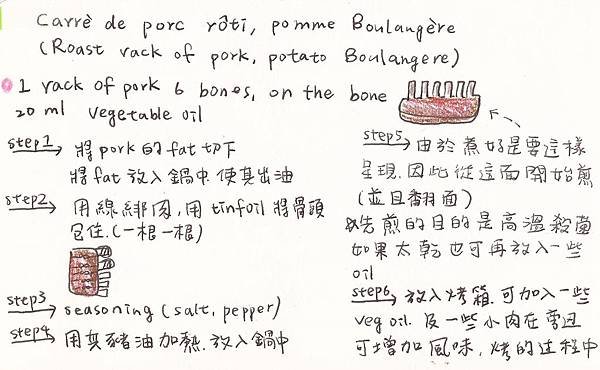 Carrè de porc rôti, pomme Boulangère
(Roast rack of pork, potato Boulangere)
1 rack of pork 6 bones, on the bone
20 ml vegetable oil
step1 將pork的fat切下
將fat放入鍋中使其出油
step2 用線綁肉,用tinfoil將骨頭
包住.(一根一根)
step3 seasoning (salt, pepper)
step4 用其豬油加熱.放入鍋中
step5 由於煮好是要這樣
呈現.因此從這面開始煎
(並且翻面)
先煎的目的是高溫殺菌
如果太乾也可再放入一些
oil
step6 放入烤箱.可加入一些
veg oil.及一些小肉在旁边
可增加風味,烤的过程中